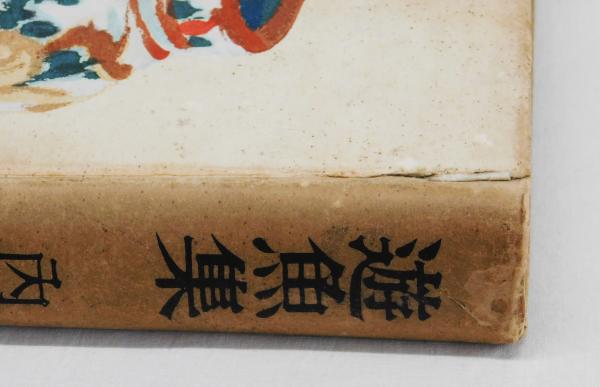 遊魚集
内